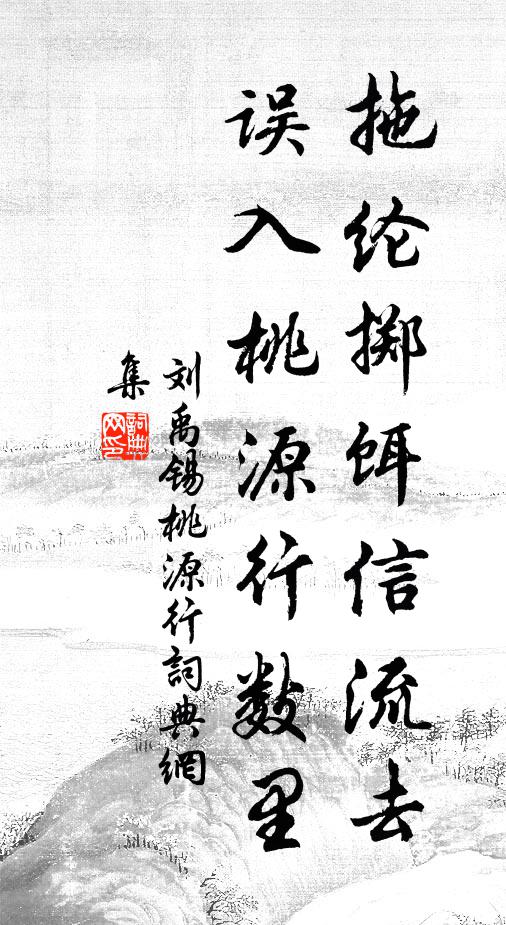 拖纶掷饵信流去
误入桃源行数里
刘禹锡桃源行詞典網
集
詞典网印